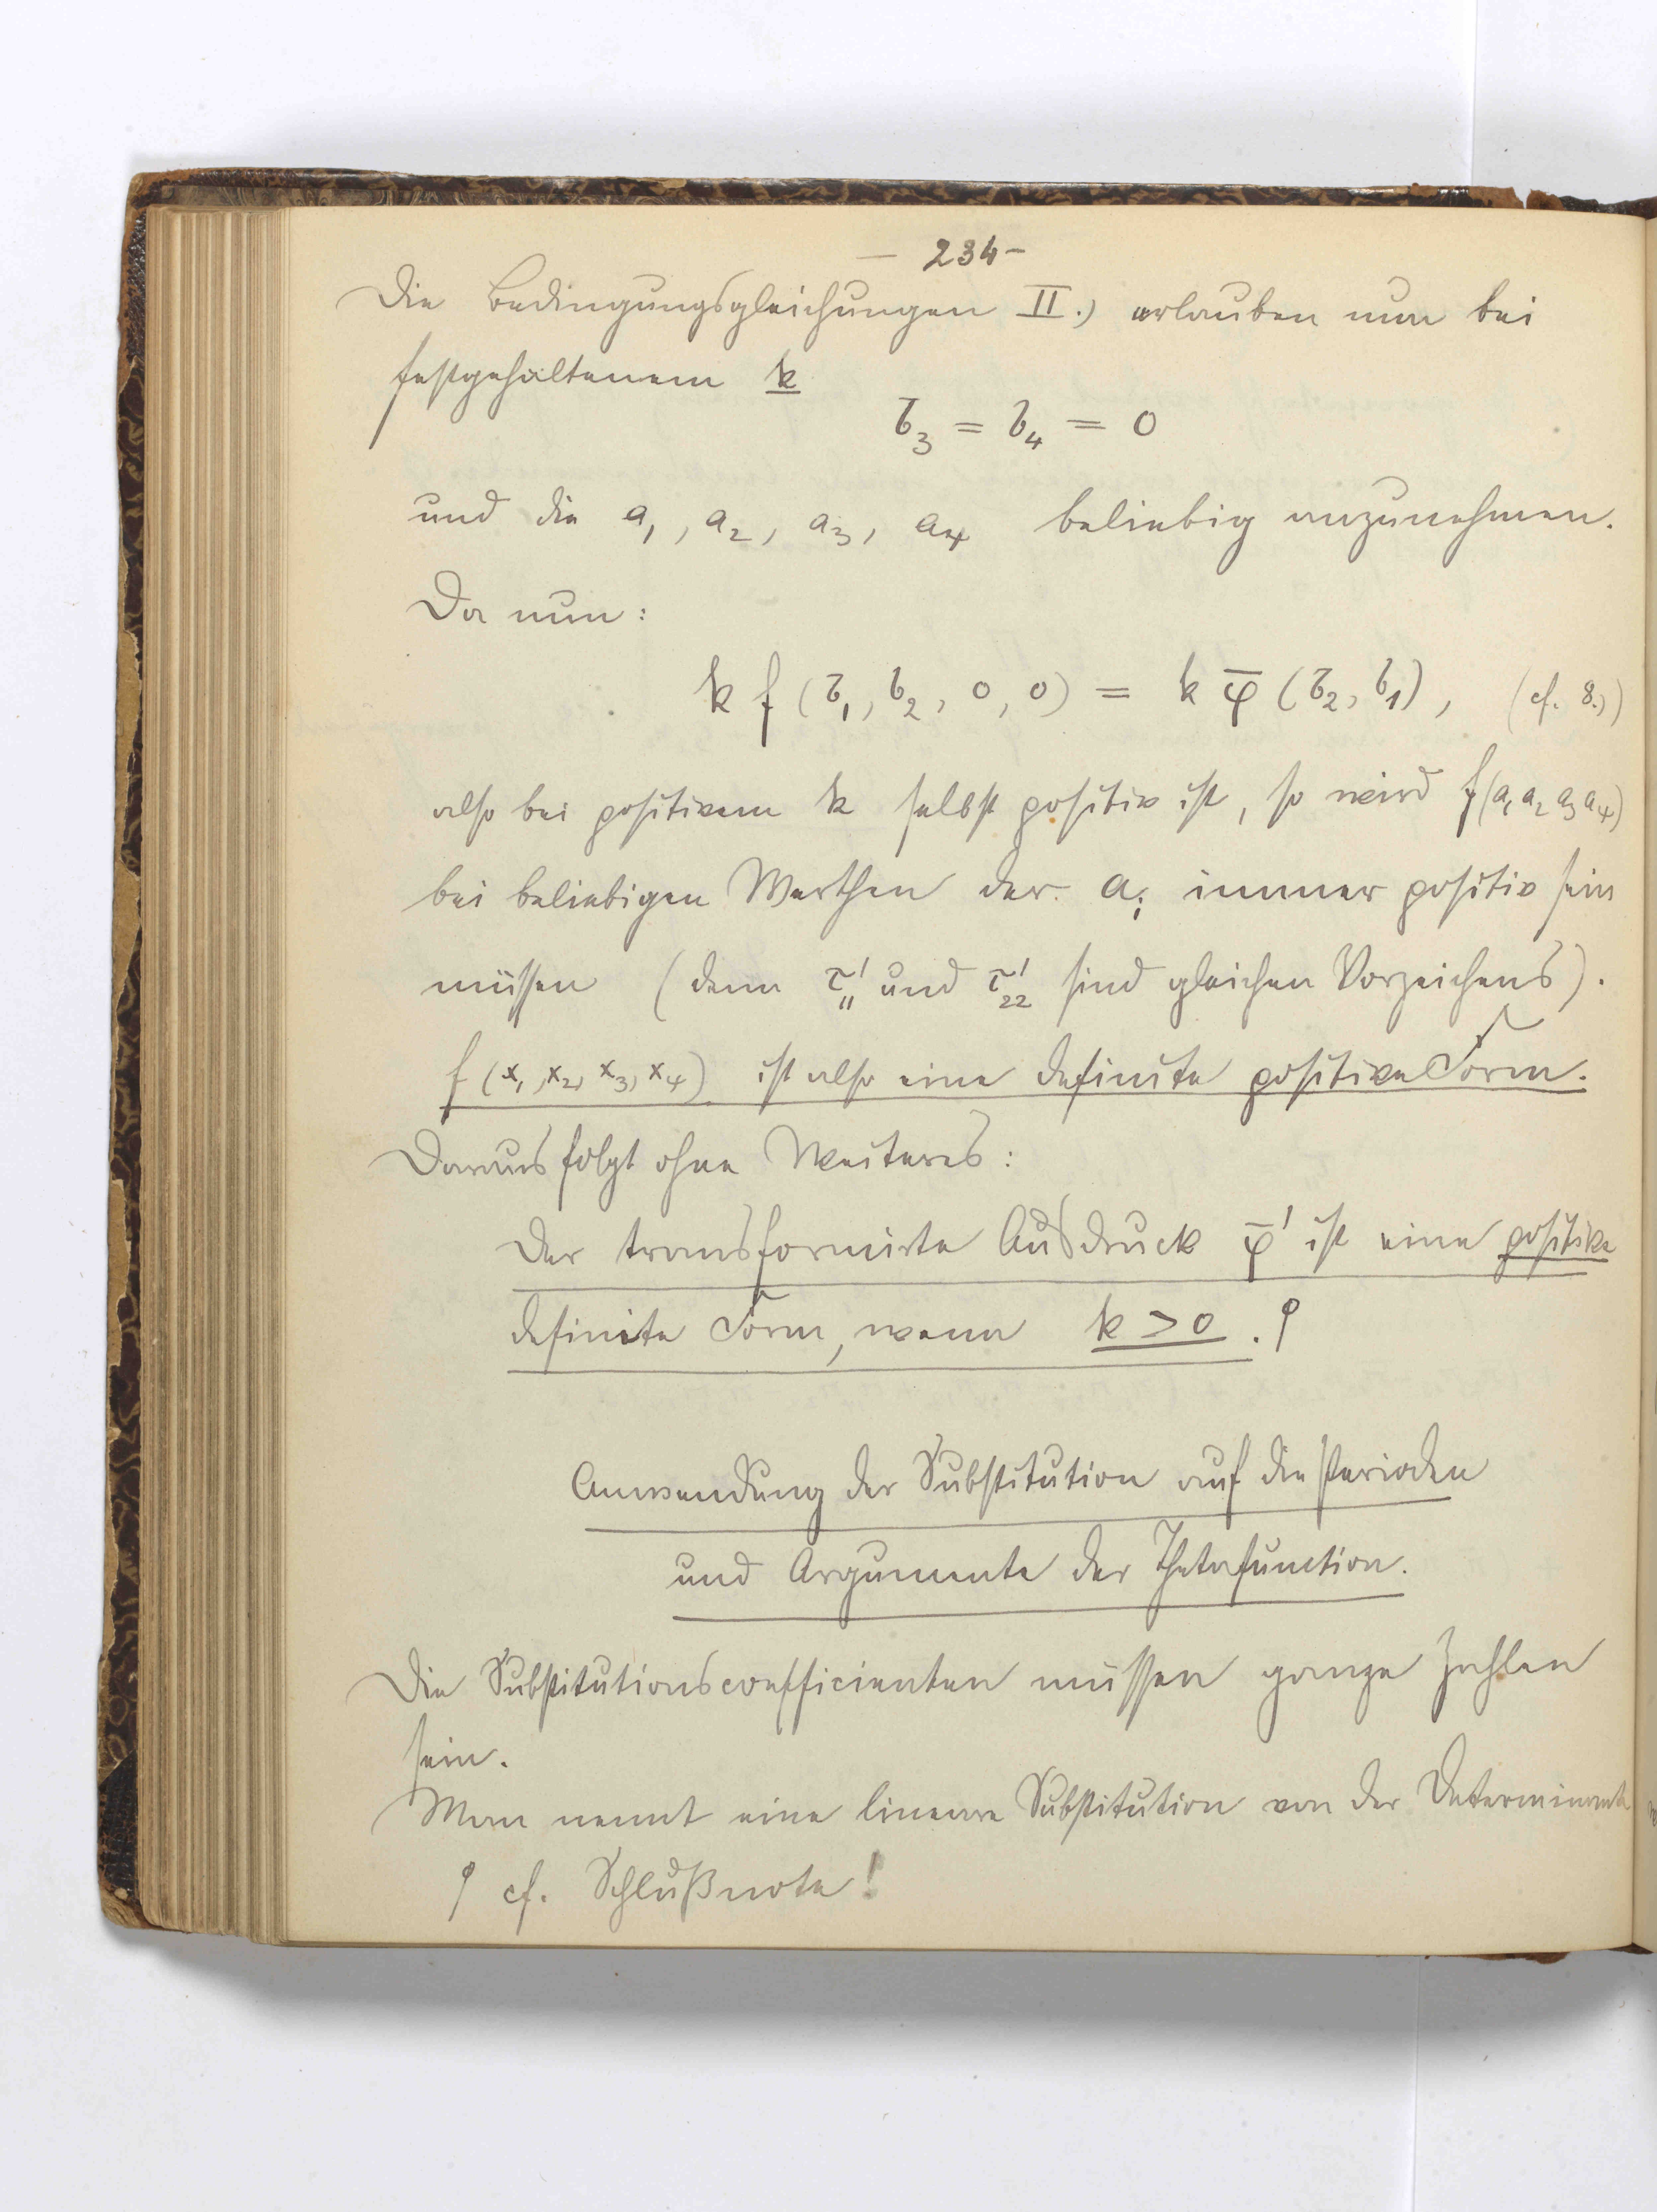 — 234 —
Die Bedingungsgleichungen II.) erlauben nun bei
festgehaltenem k
b₃ = b₄ = 0
und die a₁, a₂, a₃, a₄ beliebig anzunehmen.
Da nun:
k f (b₁, b₂, 0, 0) = k φ̄ (b₂, b₁), (cf. 8.))
also bei positivem k selbst positiv ist, so wird f(a₁ a₂ a₃ a₄)
bei beliebigen Werthen der aᵢ immer positiv sein
müssen (denn τ'₁₁ und τ'₂₂ sind gleichen Vorzeichens).
f (x₁, x₂, x₃, x₄) ist also eine definite positive Form.
Daraus folgt ohne Weiteres:
Der transformirte Ausdruck φ̄' ist eine positive
definite Form, wenn k > 0.
Anwendung der Substitution auf die Perioden
und Argumente der Thetafunction.
Die Substitutionscoefficienten müssen ganze Zahlen
sein.
Man nennt eine lineare Substitution von der Determinante
cf. Schlußnote!